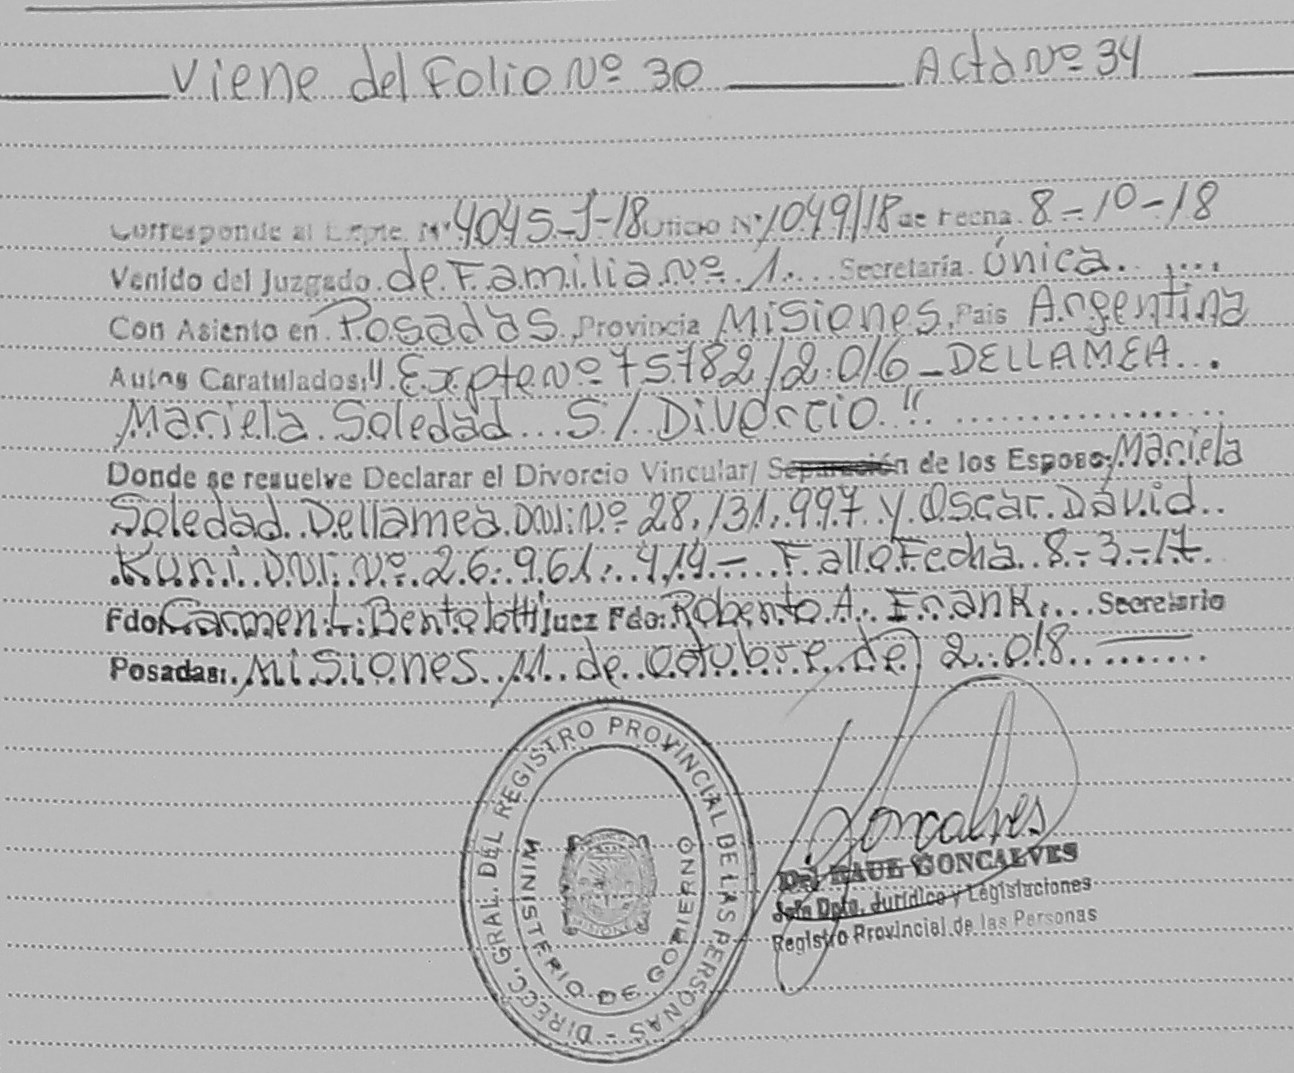 Viene del Folio Nº 30 Acta Nº 34
Corresponde al Expte. Nº 4045-J-18 Oficio Nº 1049/18 de Fecha 8-10-18
Venido del Juzgado de Familia Nº 1. Secretaría Única.
Con Asiento en Posadas, Provincia Misiones, Pais Argentina
Autos Caratulados: "Expte Nº 75782/2016 - DELLAMEA
Mariela Soledad S/ Divorcio"
Donde se resuelve Declarar el Divorcio Vincular/ Separación de los Esposo: Mariela
Soledad Dellamea DNI: Nº 28.131.997 y Oscar David
Kuni DNI: Nº 26.961.414 - Fallo Fecha 8-3-17.
Fdo Carmen L. Bertolotti Juez Fdo: Roberto A. Frank. Secretario
Posadas: Misiones 11 de octubre de 2.018
DIRECC. GRAL. DEL REGISTRO PROVINCIAL DE LAS PERSONAS -
MINISTERIO DE GOBIERNO
MISIONES
Goncalves
RAUL GONCALVES
Jefe Dpto. Jurídico y Legislaciones
Registro Provincial de las Personas